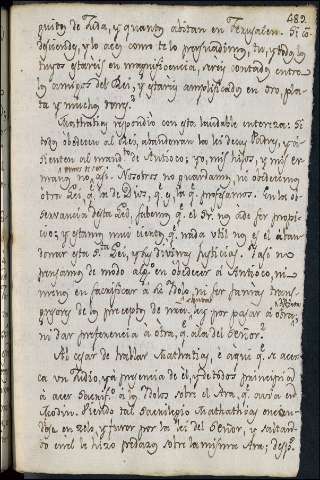 489.
de Juda, y quantos abitan en Jerusalen. Si co
desciendes, y lo aces como te lo persuadimos, tu, y todos los
tuyos estareis en magnificencia, sereis contados entre
los amigos del Rei, y estareis amplificado en oro, pla
ta y muchos dones?
Mathatias respondio con esta laudable entereza: Si
todos obedecen al Rei, abandonan la lei de sus Padres, y
sienten al mand.to de Antioco; yo, mis hijos, y mis er
manos no, asi. Nosotros no guardamos, ni obedecemos
otra Lei, q.e la de Dios, q.e es la q.e profesamos. En la ob
servancia desta Lei, sabemos q.e el Sr. nos ade ser propi
cio; y estamos mui ciertos, q.e nada util nos es el aban
donar esta S.ta Lei, y sus divinas justicias. Asi no
pensamos de modo alg.o en obedecer a Antioco, ni
menos en sacrificar a su Idolo, ni ser parvas trans
gresores de los preceptos de nra. lei por pasar a otra,
ni dar preferencia a otra, q.e a la del Señor?
Al cesar de hablar Mathatias, e aqui q.e se acer
ca un Judio, y a presencia de el, y de todos principia
a acer Sacrif.o a los Idolos sobre el Ara, q.e avia en
Modin. Viendo tal Sacrilegio Mathathias encien
dese en zelo, y furor por la lei del Señor, y saltan
do en el le hizo pedazos sobre la misma Ara; desp.s